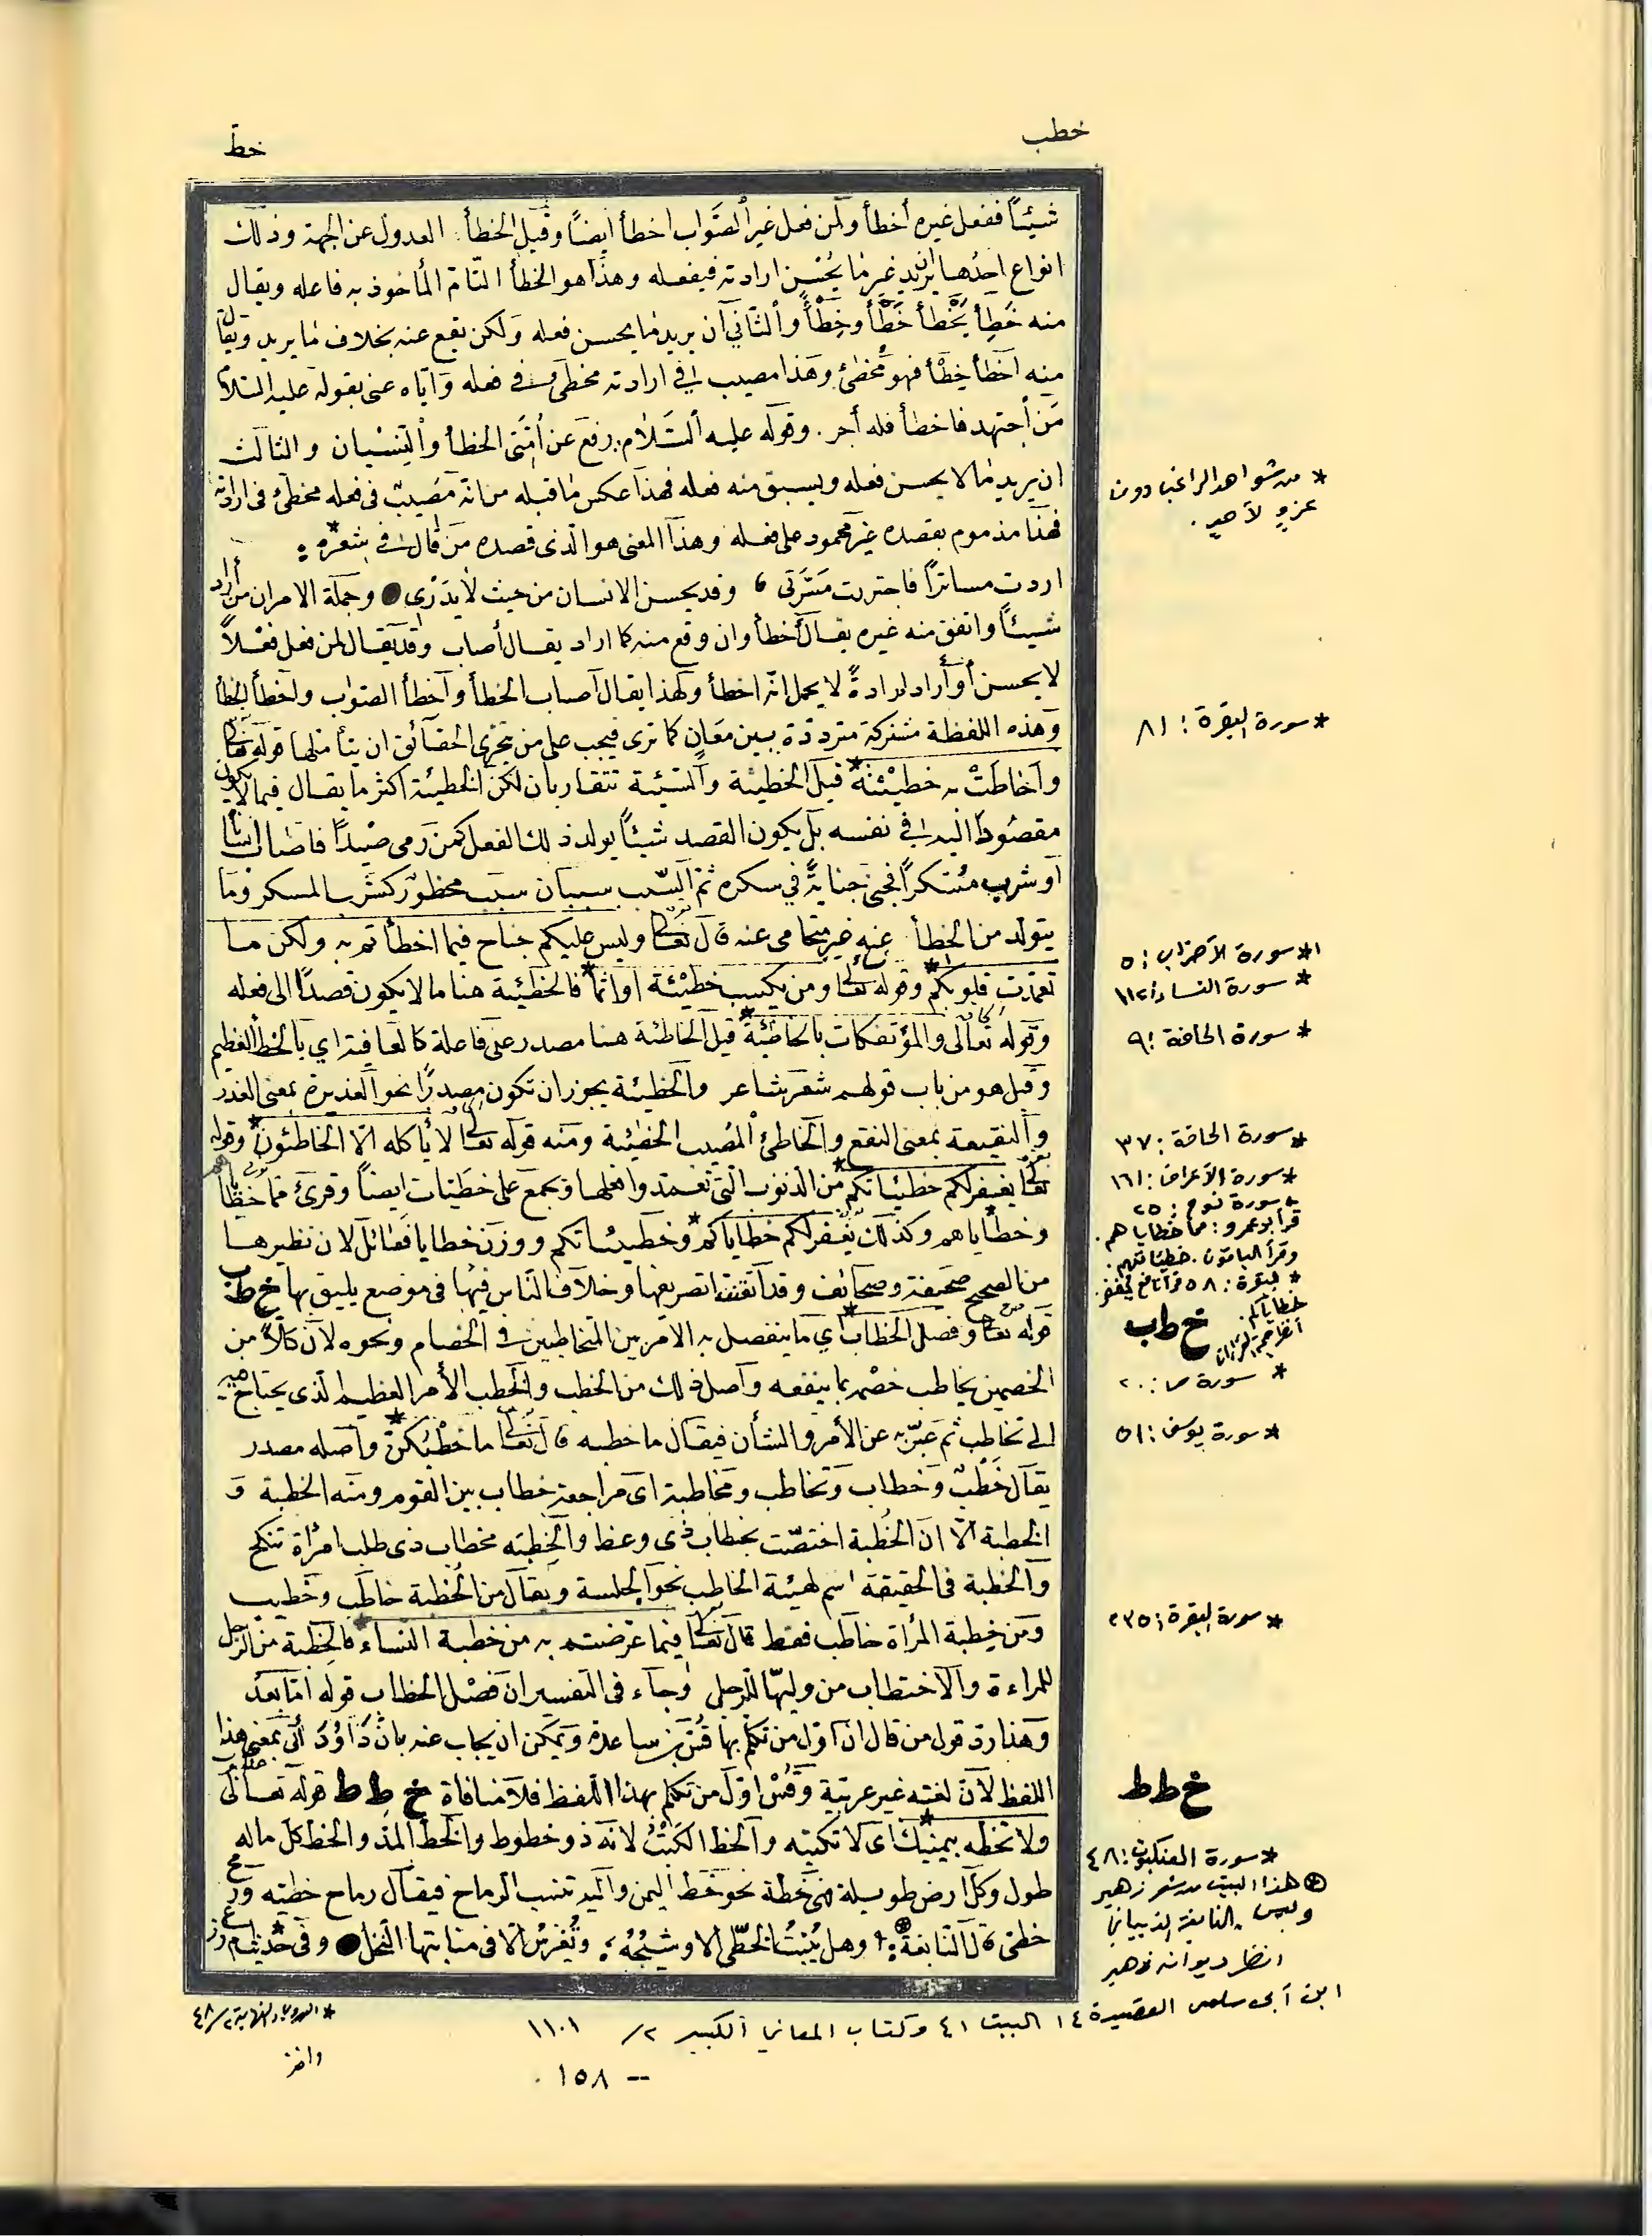 خطب
خط
شيئاً ففعل غيره أخطأ ولمن فعل غير الصواب اخطأ ايضاً وقيل الخطأ العدول عن الجهة وذلك
انواع احدها ان يريد غير ما يحسن ارادته فيفعله وهذا هو الخطأ التام المأخوذ به فاعله ويقال
منه خطئ يخطأ خطأ وخطأ والثاني ان يريد ما يحسن فعله ولكن يقع عنه بخلاف ما يريد ويقال
منه اخطأ خطأ فهو مخطئ وهذا مصيب في ارادته مخطئ في فعله واياه عنى بقوله عليه السلام
من اجتهد فاخطأ فله أجر. وقوله عليه السلام رفع عن امتى الخطأ والنسيان والثالث
ان يريد ما لا يحسن فعله ويسبق منه فعله فهذا عكس ما قبله من انه مصيب في فعله مخطئ في ارادته
فهذا مذموم بقصده غير محمود على فعله وهذا المعنى هو الذى قصده من قال في شعره*
اردت مساتراً فاجتررت مسرتى، وقد يحسن الانسان من حيث لا يدرى وجملة الامر ان من أراد
شيئاً واتفق منه غيره يقال أخطأ وان وقع منه كما اراد يقال أصاب وقد يقال لمن فعل فعلاً
لا يحسن أو أراد ارادةً لا يجمل انه اخطأ ولهذا يقال اصاب الخطأ واخطأ الصواب واخطأ الخطأ
وهذه اللفظة مشتركة مترددة بين معان كما ترى فيجب على من يتحرى الحقائق ان يتأملها قوله تعالى
واحاطت به خطيئته* قيل الخطيئة والسيئة تتقاربان لكن الخطيئة اكثر ما يقال فيما لا يكون
مقصوداً اليه في نفسه بل يكون القصد شيئاً يولد ذلك الفعل كمن رمى صيداً فاصاب انساناً
أو شرب مسكراً فجنى جنايةً في سكره ثم السبب سببان سبب محظور كشرب المسكر وما
يتولد من الخطأ عنه غير متجافى عنه قال تعالى وليس عليكم جناح فيما اخطأتم به ولكن ما
تعمدت قلوبكم* وقوله تعالى ومن يكسب خطيئة او اثماً* فالخطيئة هنا ما لا يكون قصداً الى فعله
وقوله تعالى والمؤتفكات بالخاطئة* قيل الخاطئة هنا مصدر على فاعلة كالعافية اي بالخطأ العظيم
وقيل هو من باب قولهم شعر شاعر والخطيئة يجوز ان تكون مصدراً نحو العذيرة بمعنى العذر
والنقيعة بمعنى النقع والخاطئ المصيب الخطيئة ومنه قوله تعالى لا يأكله الا الخاطئون* وقوله
تعالى يغفر لكم خطيئاتكم* من الذنوب التى تعمدوا فعلها وتجمع على خطيئات ايضاً وقرئ مما خطيئاتهم
وخطاياهم وكذلك نغفر لكم خطاياكم* وخطيئاتكم ووزن خطايا فعائل لان نظيرها
من الصحيح صحيفة وصحائف وقد اتقنت تصريفها وخلاف الناس فيها فى موضع يليق بها خ ط ب
قوله تعالى وفصل الخطاب* اي ما ينفصل به الامر بين المتخاطبين في الخصام ونحوه لان كلاً من
الخصمين يخاطب خصمه بما ينفعه واصل ذلك من الخطب والخطب الأمر العظيم الذى يحتاج فيه
الى تخاطب ثم عبّر به عن الأمر والشأن فيقال ما خطبه قال تعالى ما خطبكن* واصله مصدر
يقال خطب وخطاب وتخاطب ومخاطبة اى مراجعة خطاب بين القوم ومنه الخطبة و
الخطبة الّا ان الخُطبة اختصّت بخطاب ذى وعظ والخِطبة بخطاب ذى طلب امرأة تنكح
والخطبة فى الحقيقة اسم لهيئة الخاطب نحو الجلسة ويقال من الخُطبة خاطب وخطيب
ومن خِطبة المرأة خاطب فقط قال تعالى فيما عرضتم به من خطبة النساء* فالخطبة من الرجل
للمراءة والاختطاب من وليها للرجل وجاء فى التفسير ان فصل الخطاب قوله اما بعد
وهذا رد قول من قال ان اول من تكلم بها قس بن ساعدة ويمكن ان يجاب عنه بان داود أتى بمعنى هذا
اللفظ لان لغته غير عربية وقس اول من تكلم بهذا اللفظ فلا منافاة خ ط ط قوله تعالى
ولا تخطه بيمينك* اى لا تكتبه والخط الكتْبُ لانه ذو خطوط والخط المد والخط كل ما له
طول وكل ارض طويلة فهى خطة نحو خط اليمن واليه تنسب الرماح فيقال رماح خطيه ورمح
خطى قال النابغة: وهل يُنبتُ الخطّى الا وشيجُهُ؛ وتُغرسُ الا فى منابتها النخل وفى حديث ام زرع
* من شواهد الراغب دون
عزو لأحد.
* سورة البقرة: ٨١
١* سورة الأحزاب: ٥
* سورة النساء: ١١٢
* سورة الحاقة: ٩
* سورة الحاقة: ٣٧
* سورة الأعراف: ١٦١
* سورة نوح: ٢٥
قرأ أبو عمرو: مما خطاياهم.
وقرأ الباقون. خطيئاتهم.
* البقرة: ٥٨ قرأ نافع يُغفر
خطاياكم.
خ ط ب
* سورة ص: ٢٠
* سورة يوسف: ٥١
* سورة البقرة: ٢٣٥
خ ط ط
* سورة العنكبوت: ٤٨
⊛ هذا البيت من شعر زهير
وليس للنابغة الذبياني
انظر ديوان زهير
ابن أبى سلمى القصيدة ١٤ البيت ٤١ وكتاب المعاني الكبير ٢/ ١١٠١
-- ١٥٨.